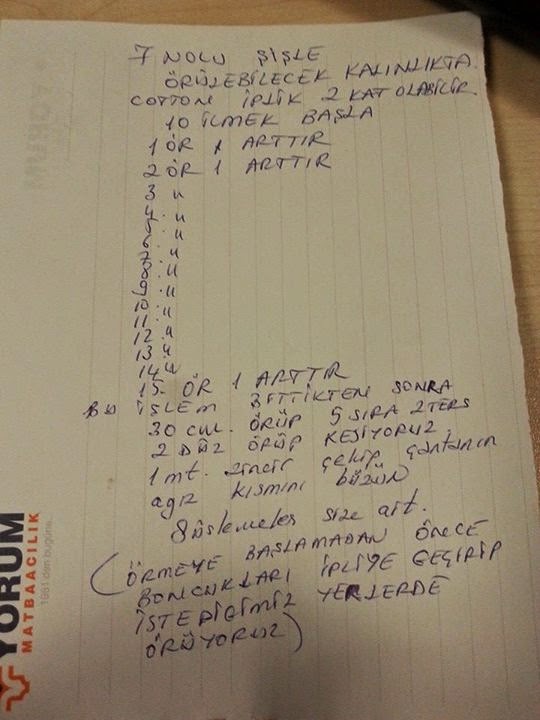 7 NOLU ŞİŞLE
ÖRÜLEBİLECEK KALINLIKTA
COTTON İPLİK 2 KAT OLABİLİR
10 İLMEK BAŞLA
1 ÖR 1 ARTTIR
2 ÖR 1 ARTTIR
3 "
4. "
5 "
6. "
7. "
8. "
9. "
10. "
11. "
12. "
13 "
14 "
15. ÖR 1 ARTTIR
BU İŞLEM BİTTİKTEN SONRA
30 cm. ÖRÜP 5 SIRA 2 TERS
2 DÜZ ÖRÜP KESİYORUZ.
1 mt. zincir çekip çantanın
ağız kısmını büzün
Süslemeler size ait.
(ÖRMEYE BAŞLAMADAN ÖNCE
BONCUKLARI İPLİĞE GEÇİRİP
İSTEDİĞİMİZ YERLERDE
ÖRÜYORUZ)
YORUM
MATBAACILIK
1981'den bugüne.